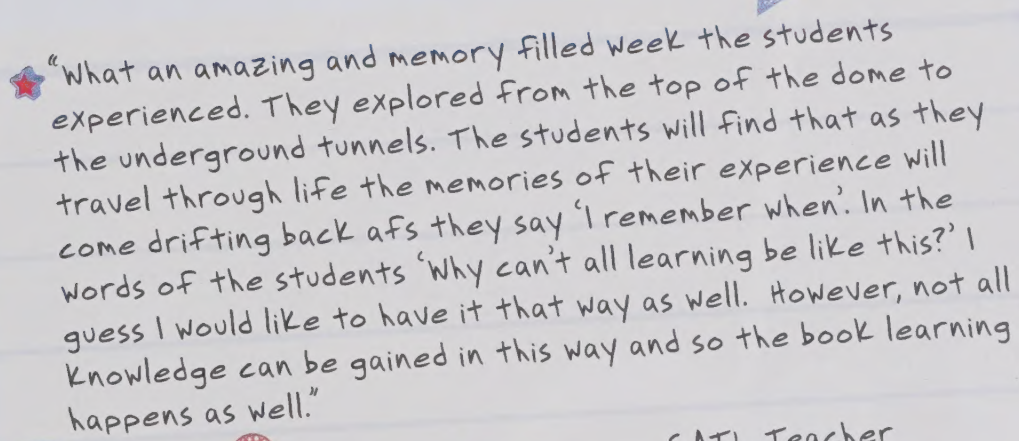 "What an amazing and memory filled week the students
experienced. They explored from the top of the dome to
the underground tunnels. The students will find that as they
travel through life the memories of their experience will
come drifting back afs they say 'I remember when'. In the
words of the students 'Why can't all learning be like this?' I
guess I would like to have it that way as well. However, not all
knowledge can be gained in this way and so the book learning
happens as well."
Teacher